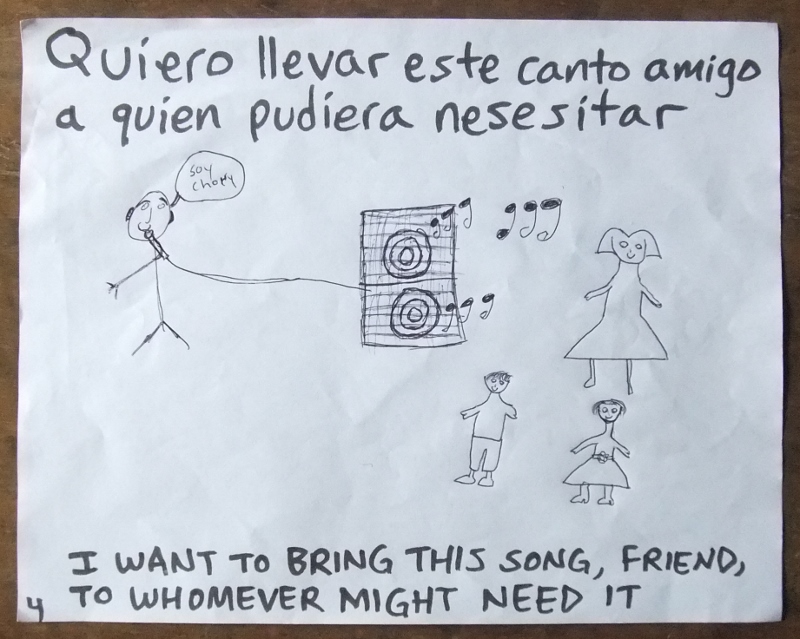 Quiero llevar este canto amigo
a quien pudiera nesesitar
soy
chomy
I WANT TO BRING THIS SONG, FRIEND,
TO WHOMEVER MIGHT NEED IT
4